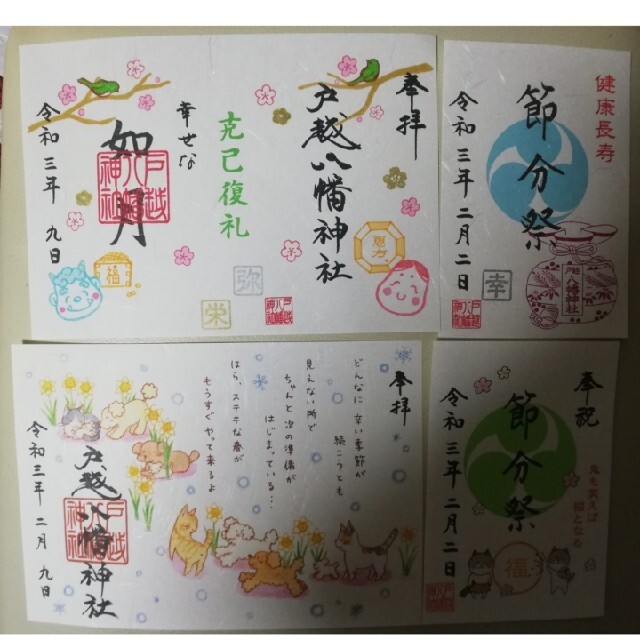 奉拝
戸越八幡神社
恵方
克己復礼
弥
栄
幸せな
如月
戸越八幡神社
福
令和三年 九日
健康長寿
節分祭
令和三年二月二日
幸
戸越八幡神社
奉拝
どんなに辛い季節が
続こうとも
見えない所で
ちゃんと次の準備が
はじまっている…
ほら、ステキな春が
もうすぐやって来るよ
戸越八幡神社
令和三年 二月 九日
奉祝
節分祭
鬼も笑えば
福となる
令和三年二月二日
福